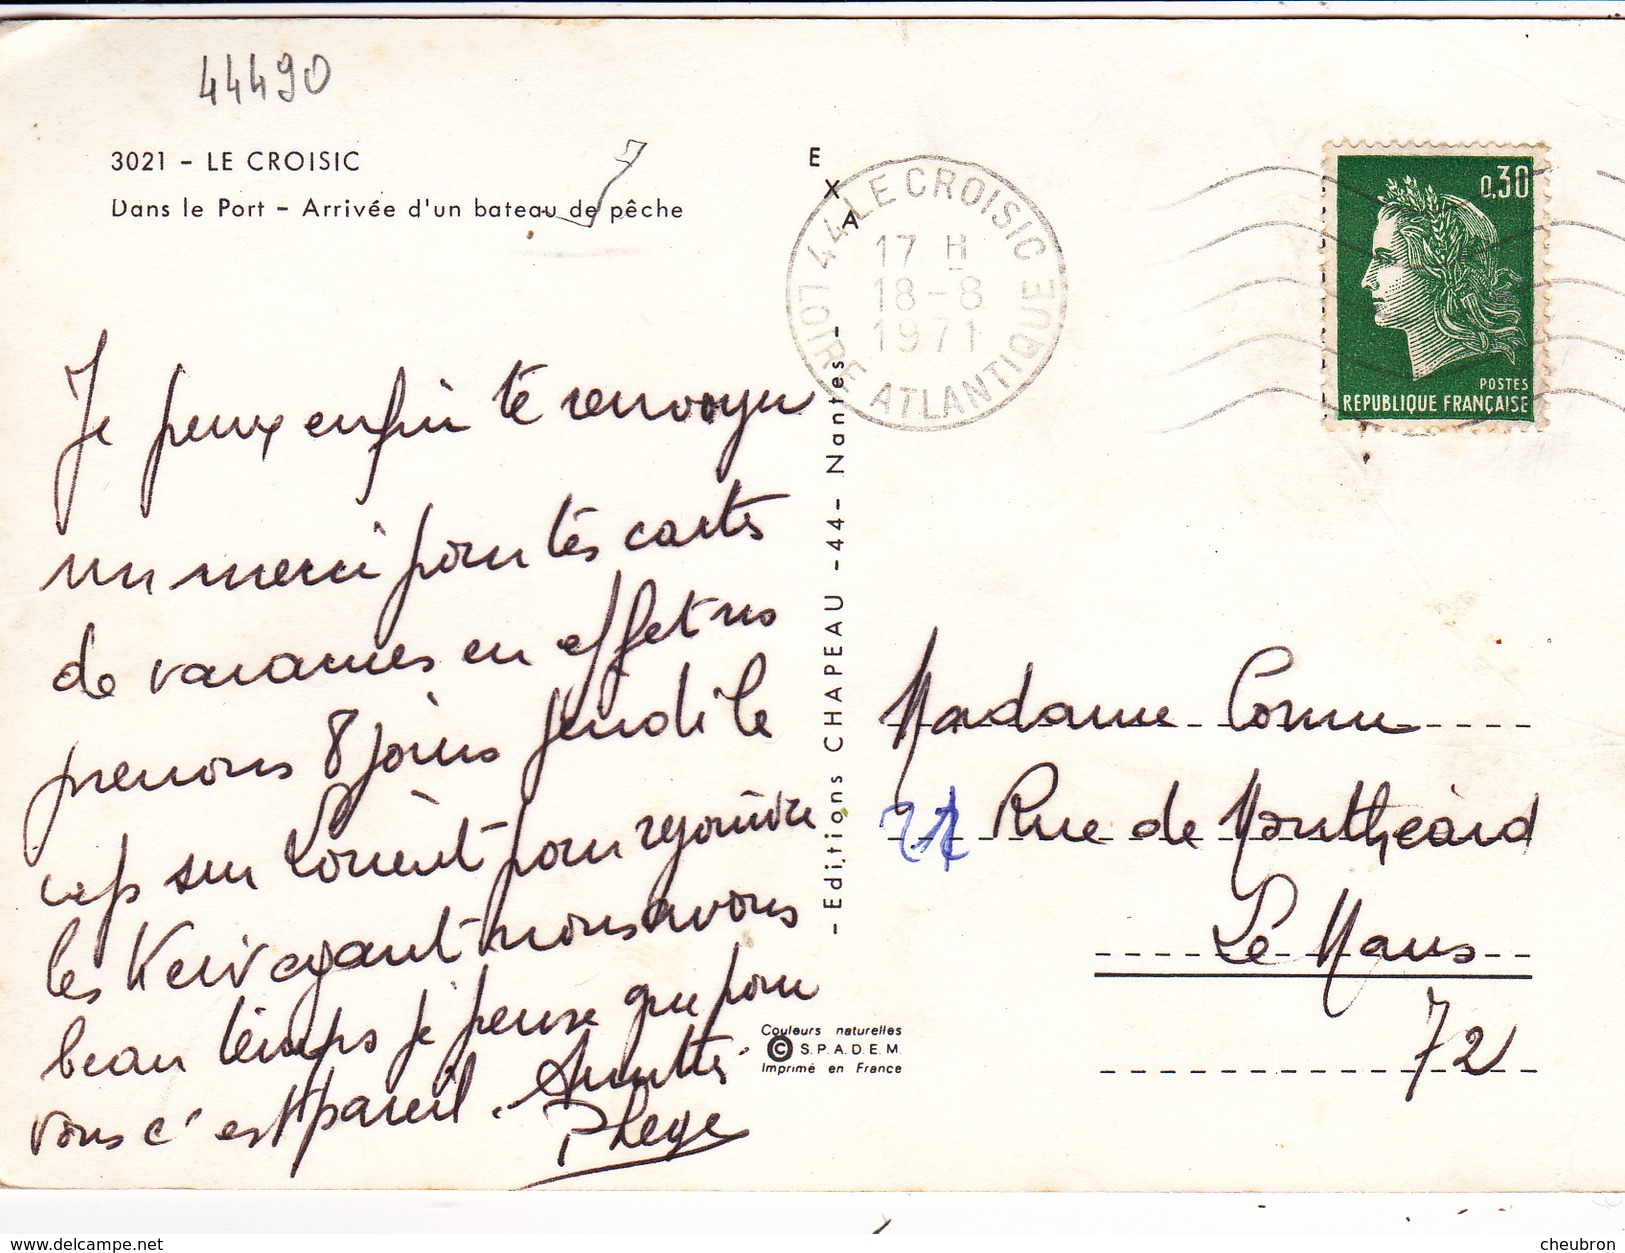 44490
3021 - LE CROISIC
Dans le Port - Arrivée d'un bateau de pêche
EXA
44 LE CROISIC
17 H
18-8
1971
LOIRE ATLANTIQUE
0,30
POSTES
REPUBLIQUE FRANÇAISE
Je peux enfin te renvoyer
un merci pour tes cartes
de vacances en effet ns
prenons 8 jours jeudi le
cap sur Lorient pour rejoindre
les nous avons
beau temps je pense que pour
vous c'est pareil.
- Editions CHAPEAU -44- Nantes -
Madame Cornu
Rue de Monthéard
Le Mans
72
Couleurs naturelles
© S.P.A.D.E.M.
Imprimé en France
www.delcampe.net
cheubron